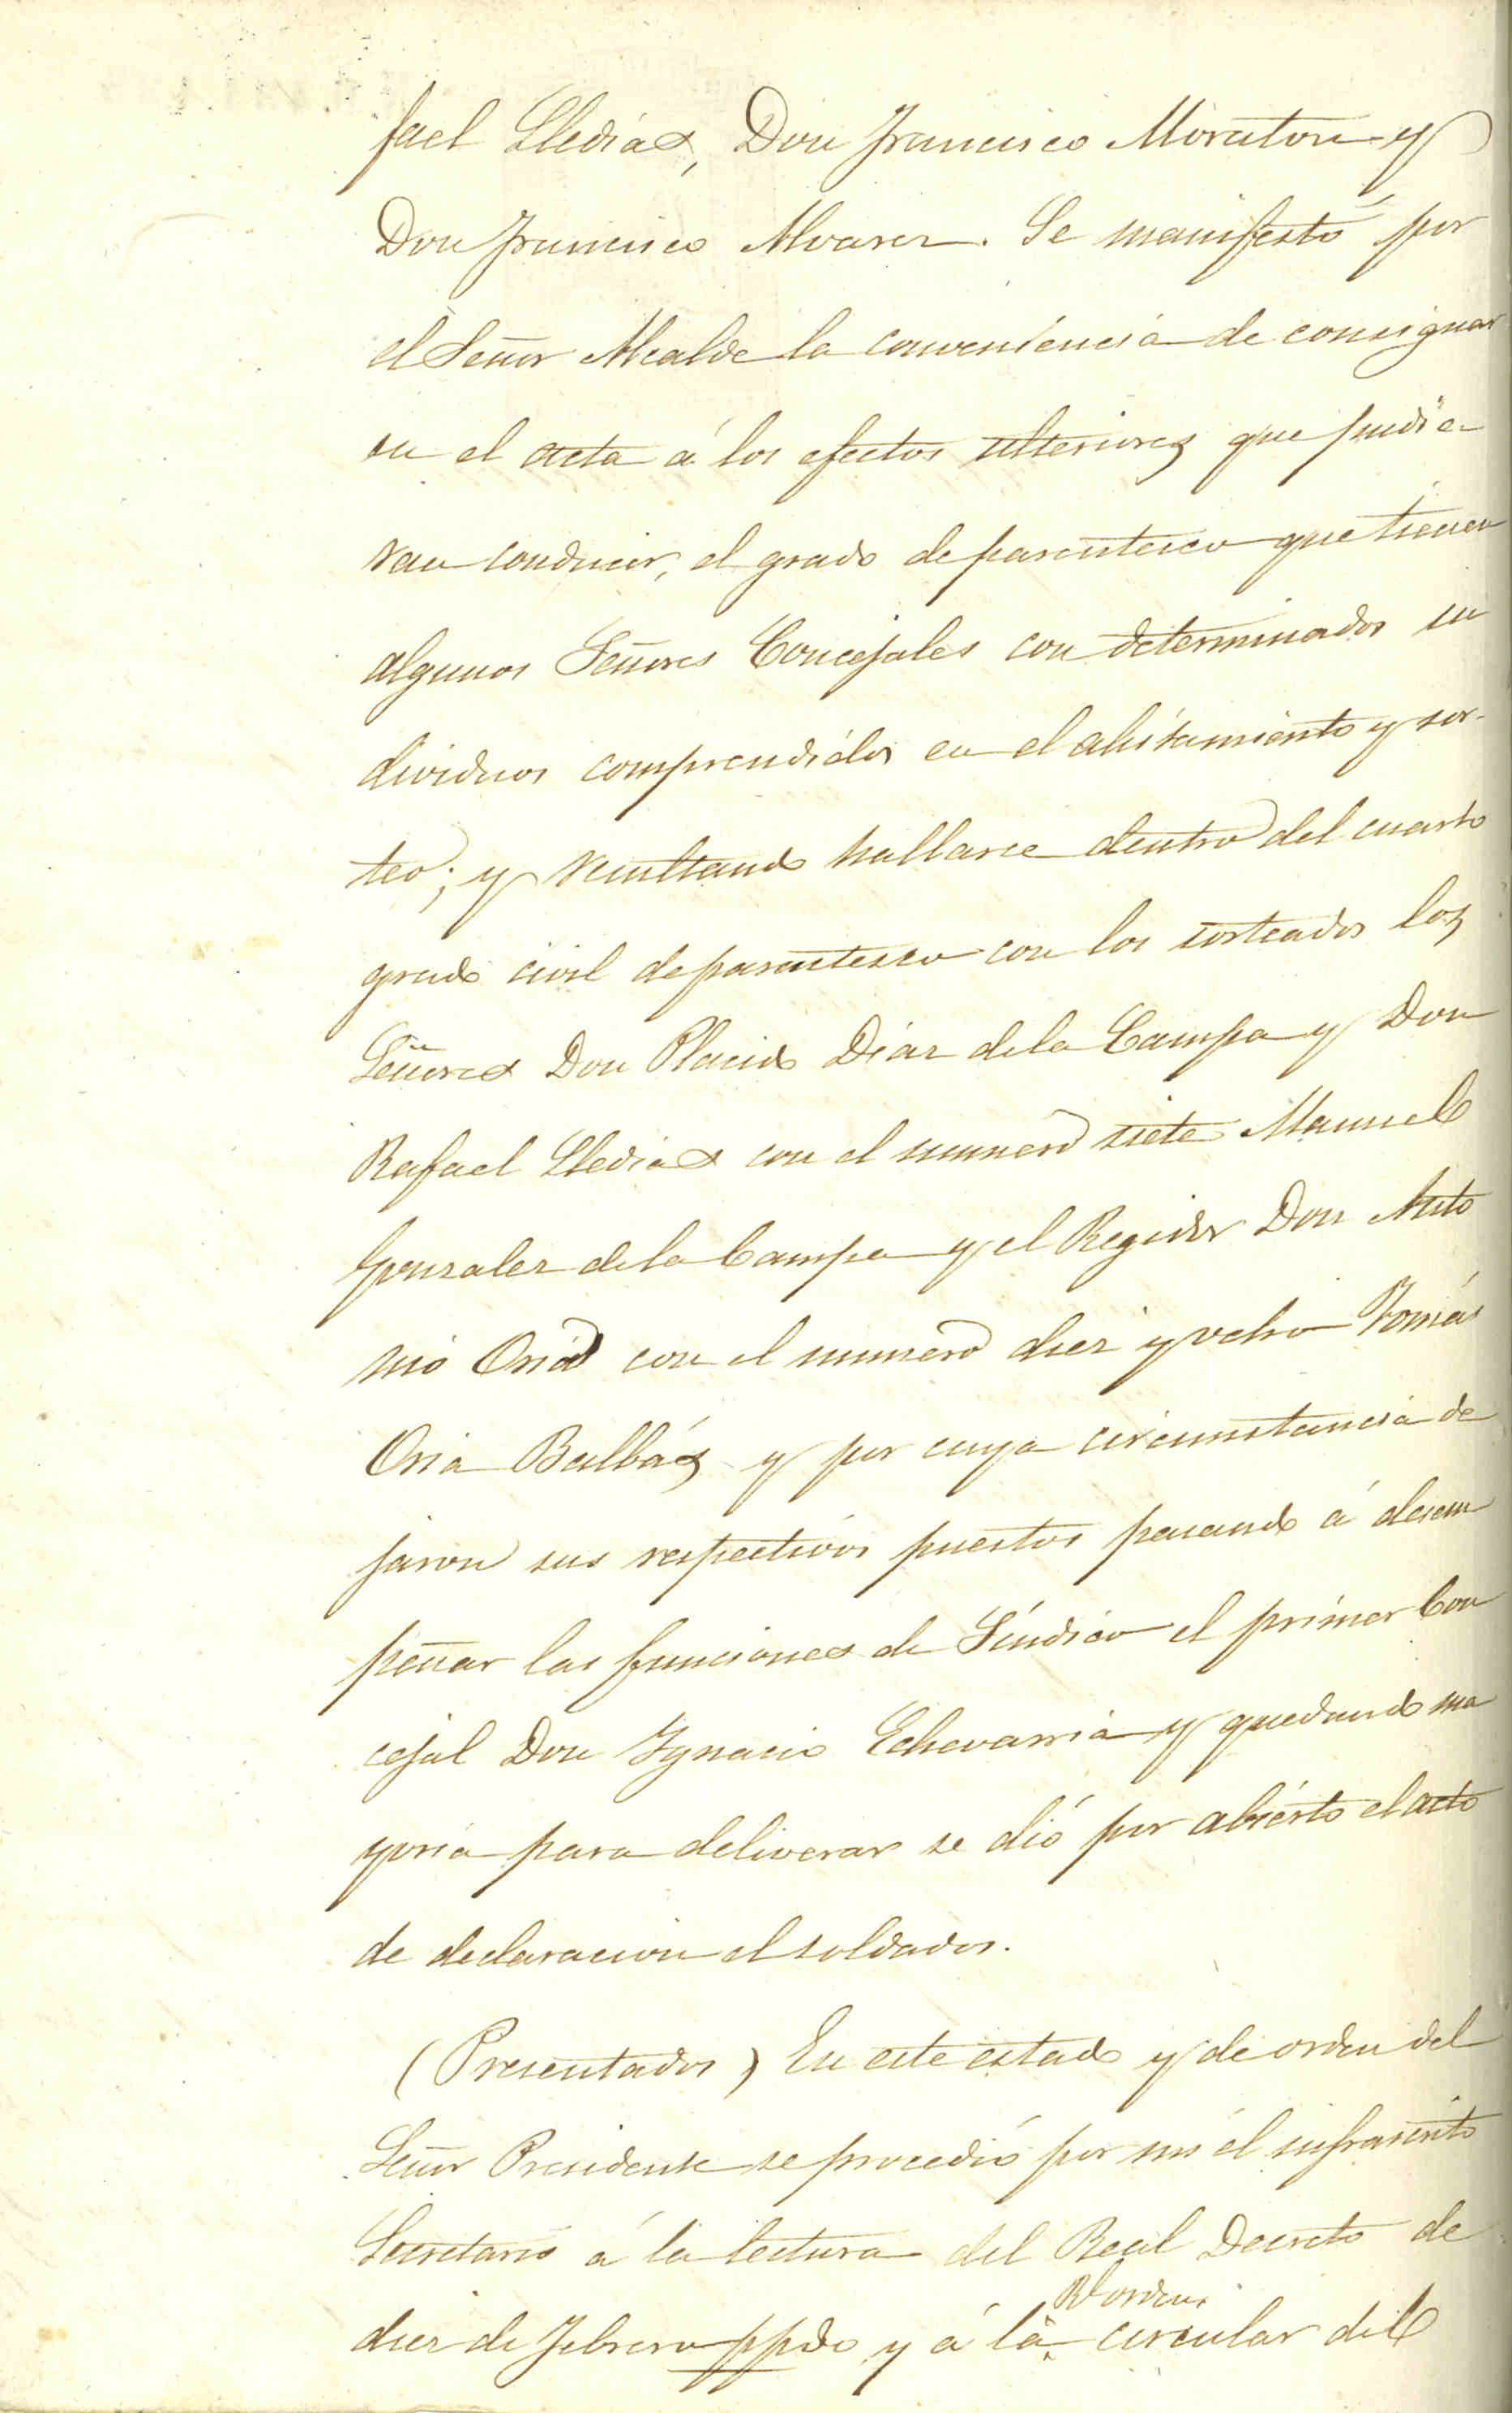 fael Lledías, Don Francisco Moraton y
Don Francisco Alvarez. Se manifestó por
el Señor Alcalde la conveniencia de consignar
en el acta á los efectos ulteriores que pudie
ran conducir, el grado de parentesco que tienen
algunos Señores Concejales con determinados in
dividuos comprendidos en el alistamiento y sor-
teo; y resultando hallarse dentro del cuarto
grado civil de parentesco con los sorteados los
Señores Don Placido Diaz de la Campa y Don
Rafael Lledias con el numero siete Manuel
Gonzalez de la Campa y el Regidor Don Anto
nio Oria con el numero diez y ocho Tomás
Oria Balbás y por cuya circunstancia de
jaron sus respectivos puestos pasando á desem
peñar las funciones de Síndico el primer Con
cejal Don Ygnacio Echevarria y quedando ma
yoria para deliverar se dió por abierto el acto
de declaracion el soldados.
(Presentados) En este estado y de orden del
Señor Presidente se procedió por mi él infrascrito
Secretario á la lectura del Real Decreto de
Rl orden
diez de Febrero ppdo y á la circular del